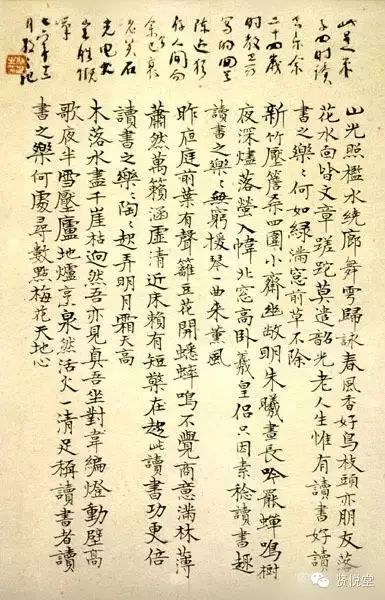 子四时读
二十四歲
陈迹犹
存人间
老矣石
火电光
山光照檻水繞廊舞雩歸詠春風香好鳥枝頭亦朋友落
花水面皆文章蹉跎莫遣韶光老人生惟有讀書好讀
書之樂〻何如綠滿窗前草不除
新竹壓簷桑四圍小齋幽敞明朱曦晝長吟罷蟬鳴樹
夜深燼落螢入幃北窗高臥羲皇侶只因素稔讀書趣
讀書之樂〻無窮撥琴一曲來薰風
昨夜庭前葉有聲籬豆花開蟋蟀鳴不覺商意滿林薄
蕭然萬籟涵虛清近床賴有短檠在趁此讀書功更倍
讀書之樂〻陶〻起弄明月霜天高
木落水盡千崖枯迥然吾亦見真吾坐對韋編燈動壁高
歌夜半雪壓廬地爐烹泉然活火一清足稱讀書者讀
書之樂何處尋數點梅花天地心
贤悦堂